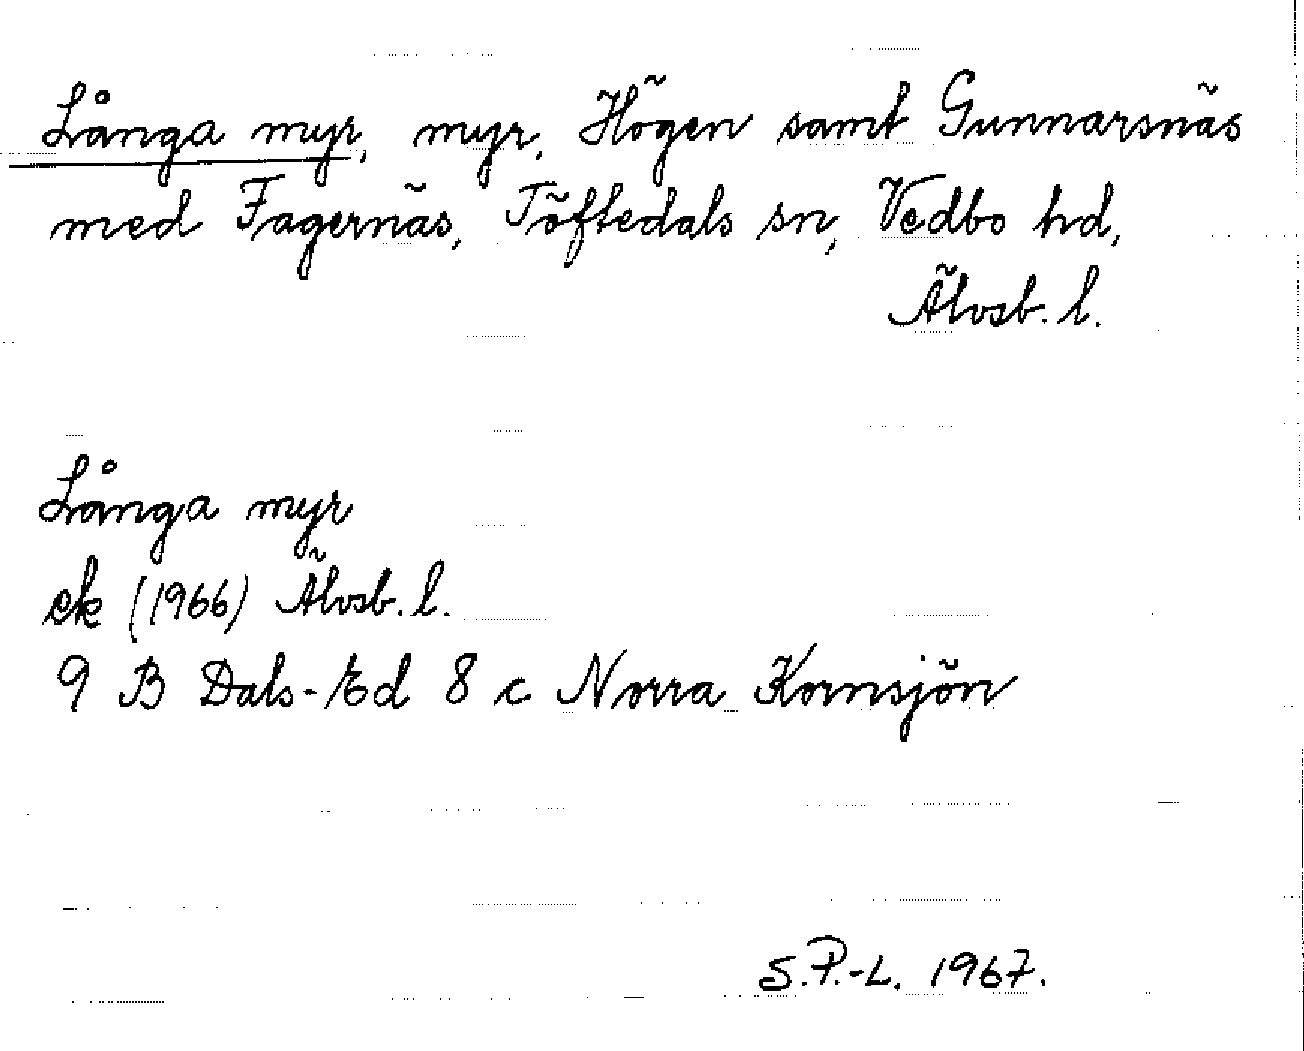 Långa myr, myr, Högen samt Gunnarsnäs
med Fagernäs, Töftedals sn, Vedbo hd,
Älvsb. l.
Långa myr
ek (1966) Älvsb. l.
9 B Dals-Ed 8 c Norra Kornsjön
S.P.-L. 1967.